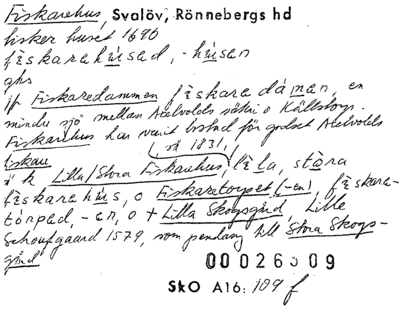 Fiskarehus, Svalöv, Rönnebergs hd
fisker huset 1690
fèskarahúsad, -húsan
ghs
jf Fiskaredammen fèskaradáman, en
mindre sjö mellan Axelvolds säteri o Källstorp.
Fiskarehus har varit bostad för godset Axelvolds
fiskare
(så 1831)
i k Lilla/Stora Fiskarehus, lèla, stòra
fèskarahús, o Fiskaretorpet (-en), fèskara-
tórpad, -en, o + Lilla Skogsgård, Lille
Schoufgaard 1579, som pendang till Stora Skogs-
gård
00026309
SkO A16: 109 f